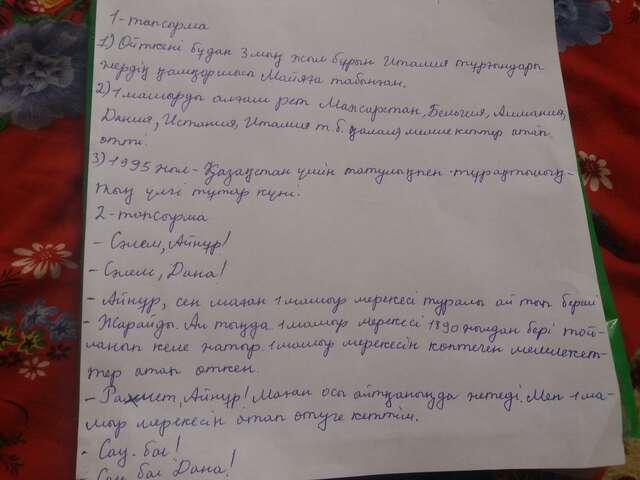 1-тапсырма
1) Өйткені бұдан 3 мың жыл бұрын Италия тұрғындары
жердің қамқоршысы Майяға табынған.
2) 1 мамырды алғаш рет Мажарстан, Бельгия, Алмания,
Дания, Испания, Италия т.б. қалалы мемлекеттер атап
өтті.
3) 1995 жыл - Қазақстан үшін татулықпен тұрақтылық-
тың үлгі тұтар күні.
2-тапсырма
- Сәлем, Айнұр!
- Сәлем, Дана!
- Айнұр, сен маған 1 мамыр мерекесі туралы айтып берші
- Жарайды. Ал тыңда. 1 мамыр мерекесі 1890 жылдан бері той-
ланып келе жатыр. 1 мамыр мерекесін көптеген мемлекет-
тер атап өткен.
- Рахмет, Айнұр! Маған осы айтқаныңда жетеді. Мен 1 ма-
мыр мерекесін атап өтуге кеттім.
- Сау бол!
- Сау бол Дана!